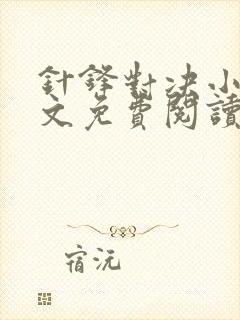 針鋒對决小
文免費閱讀
宿沅